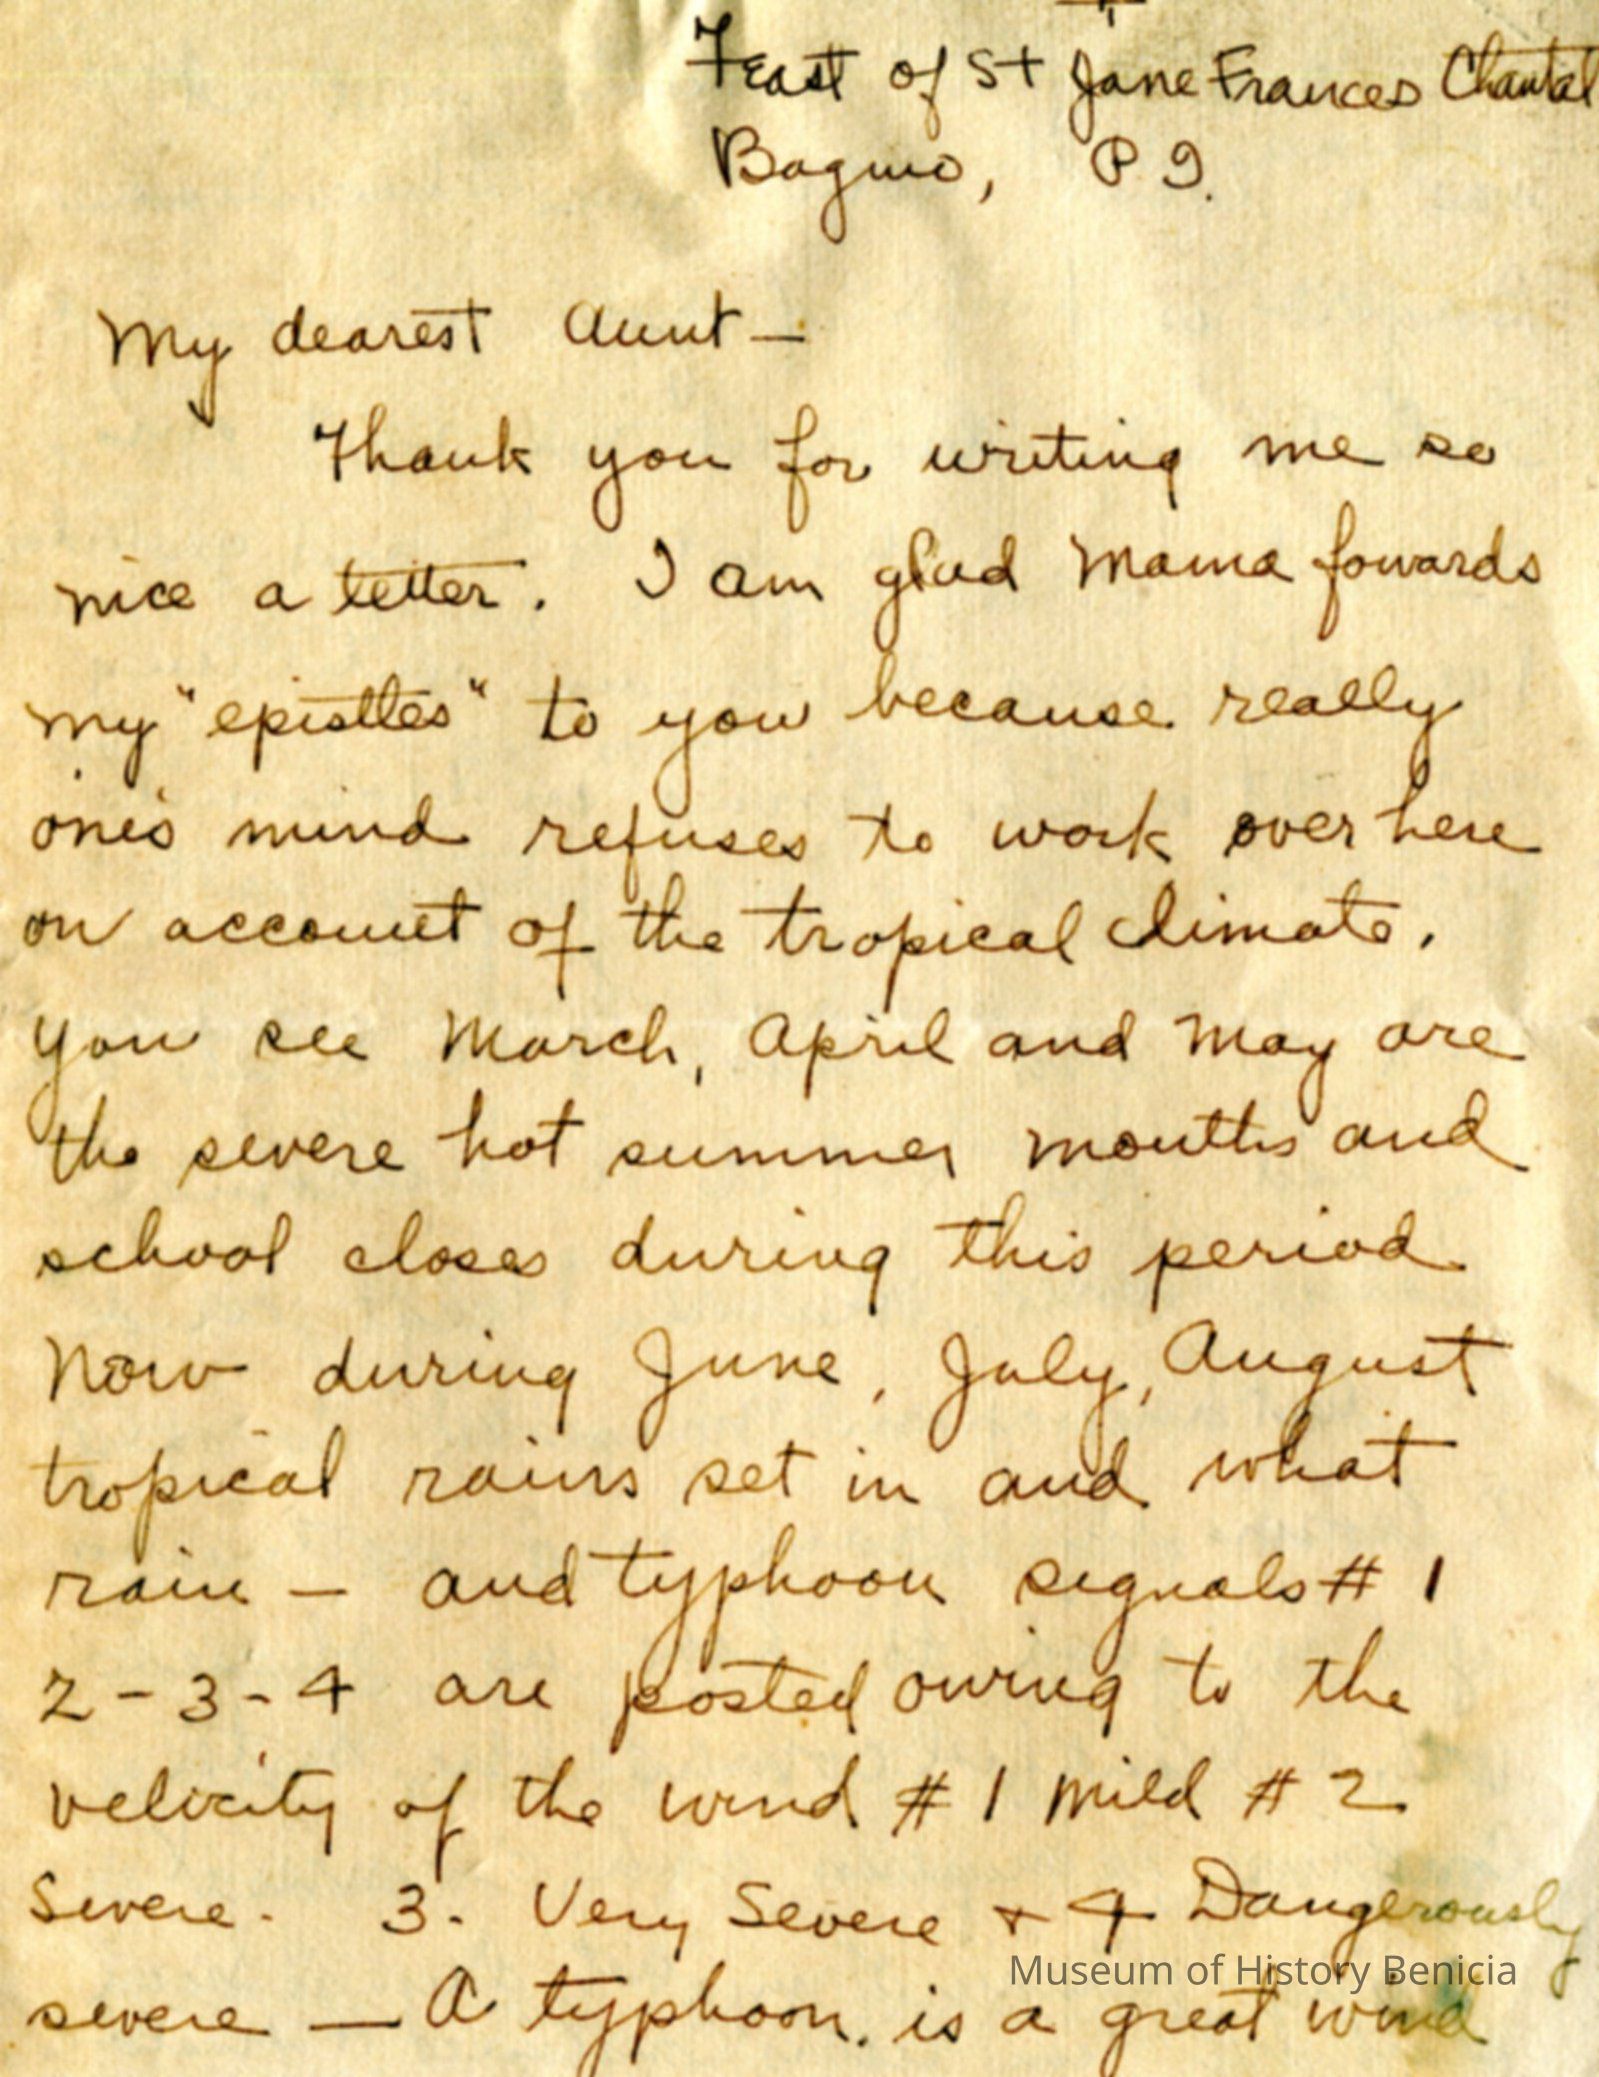 Feast of St Jane Frances Chantal
Baguio, P I.
My dearest Aunt —
Thank you for writing me so
nice a letter. I am glad Mama fowards
my "epistles" to you because really
one's mind refuses to work over here
on account of the tropical climate.
You see March, April and May are
the severe hot summer months and
school closes during this period
Now during June, July, August
tropical rains set in and what
rain — and typhoon signals # 1
2 - 3 - 4 are posted owing to the
velocity of the wind # 1 Mild # 2
Severe. 3. Very Severe + 4 Dangerously
Museum of History Benicia
severe — A typhoon. is a great wind